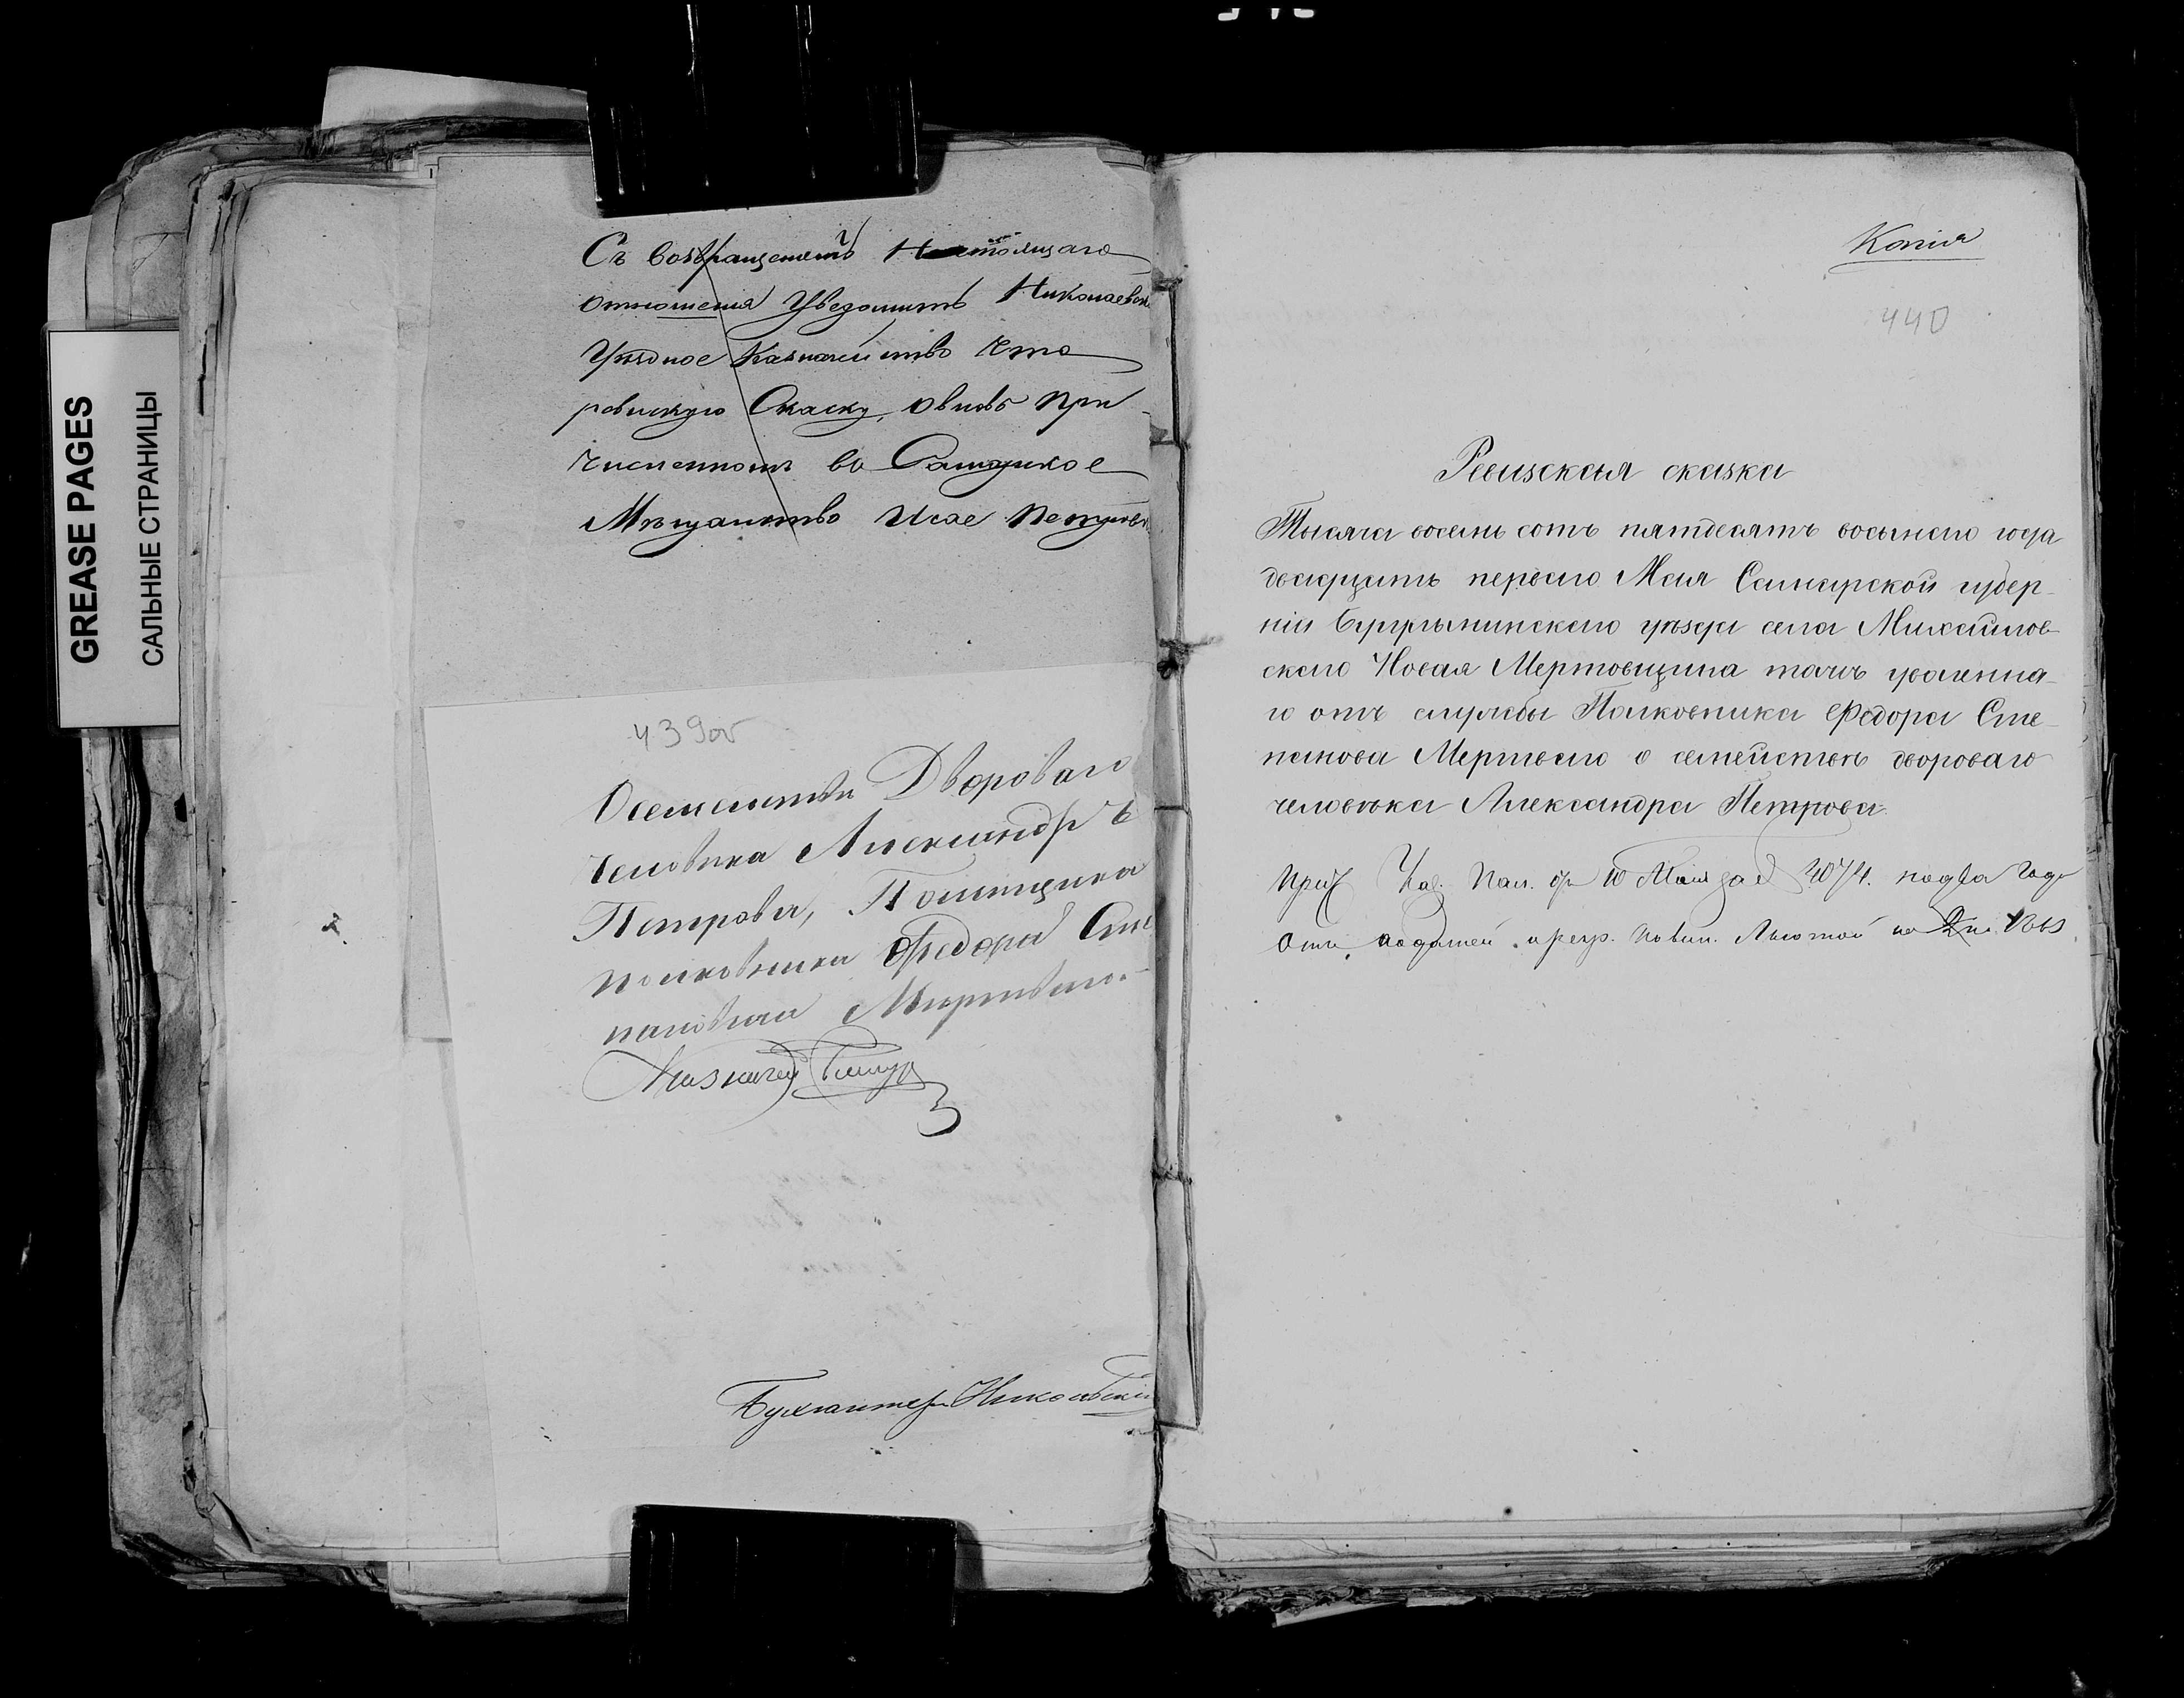 GREASE PAGES
САЛЬНЫЕ СТРАНИЦЫ
Съ возвращениемъ Настоящаго
отношения Уведомить Николаевск
Уѣздное Казначейство что
ревискую Скаску, о вновь при
численномъ во Самарское
Мѣщанство Исае Петров
439об
О семействѣ Двороваго
человѣка Александръ
Петрова, Помѣщика
полковника Федора Сте
пановича Мертваго.
Казначей
Бухгалтеръ Никольский
Копія
440
Ревизская сказка
Тысяча восемь сотъ пятдесятъ восьмаго года
двадцать перваго Мая Самарской губер-
ніи Бугульминскаго уѣзда села Михайлов-
скаго Новая Мертовщина тожъ уволенна-
го отъ службы Полковника Федора Сте-
панова Мертваго о семействѣ двороваго
человѣка Александра Петрова.
Каз. Пал. от 10 Мая за № 4074. на два года
отъ податей и рекр. повин. Льготой по